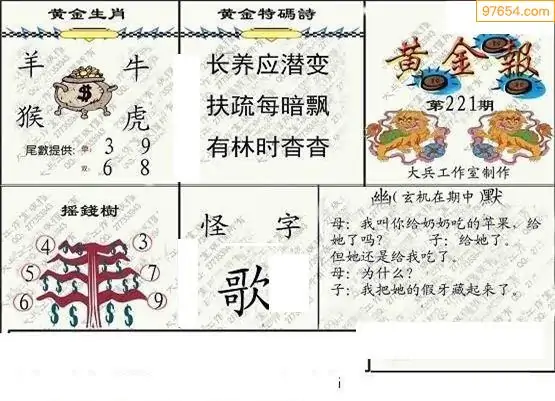 97654.com
黄金生肖
羊 牛
猴 虎
$
尾數提供: 单: 3 9
双: 6 8
黄金特碼詩
长养应潜变
扶疏每暗飘
有林时杳杳
黄金報
第221期
大兵工作室制作
摇錢樹
④ ③
⑤ ⑦
⑥ ⑨
$ $ $ $
怪 字
歌
幽(玄机在期中)默
母：我叫你给奶奶吃的苹果，给
她了吗？ 子：给她了。
但她还是给我吃了。
母：为什么？
子：我把她的假牙藏起来了。
i